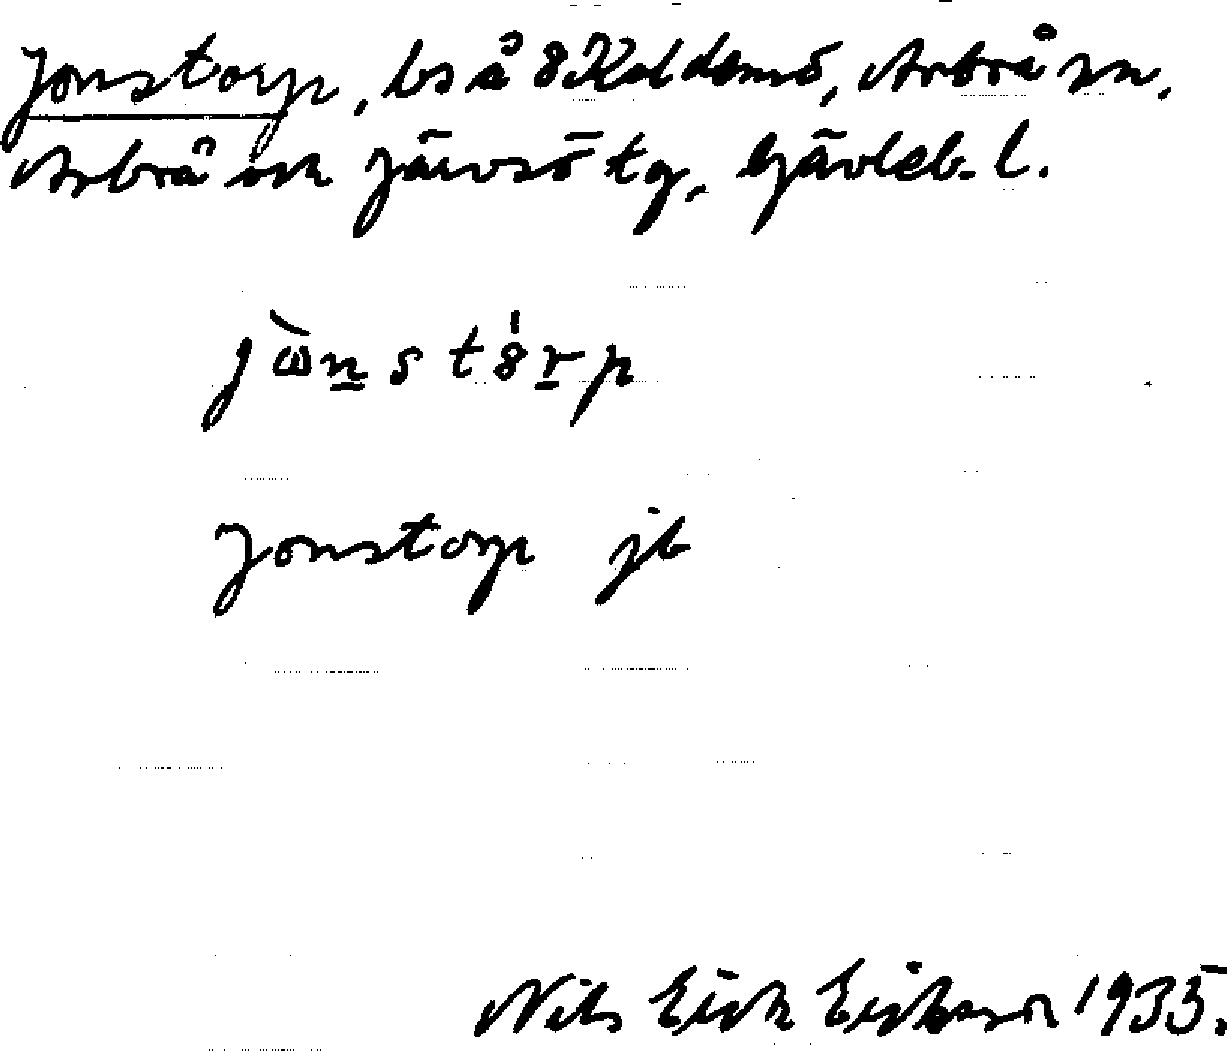 Jonstorp, ls å 8 Koldemo, Arbrå sn,
Arbrå och Järvsö tg, Gävleb. l.
jὼn̲st8́r̲p
Jonstorp jb
Nils Eric Eriksson 1935.